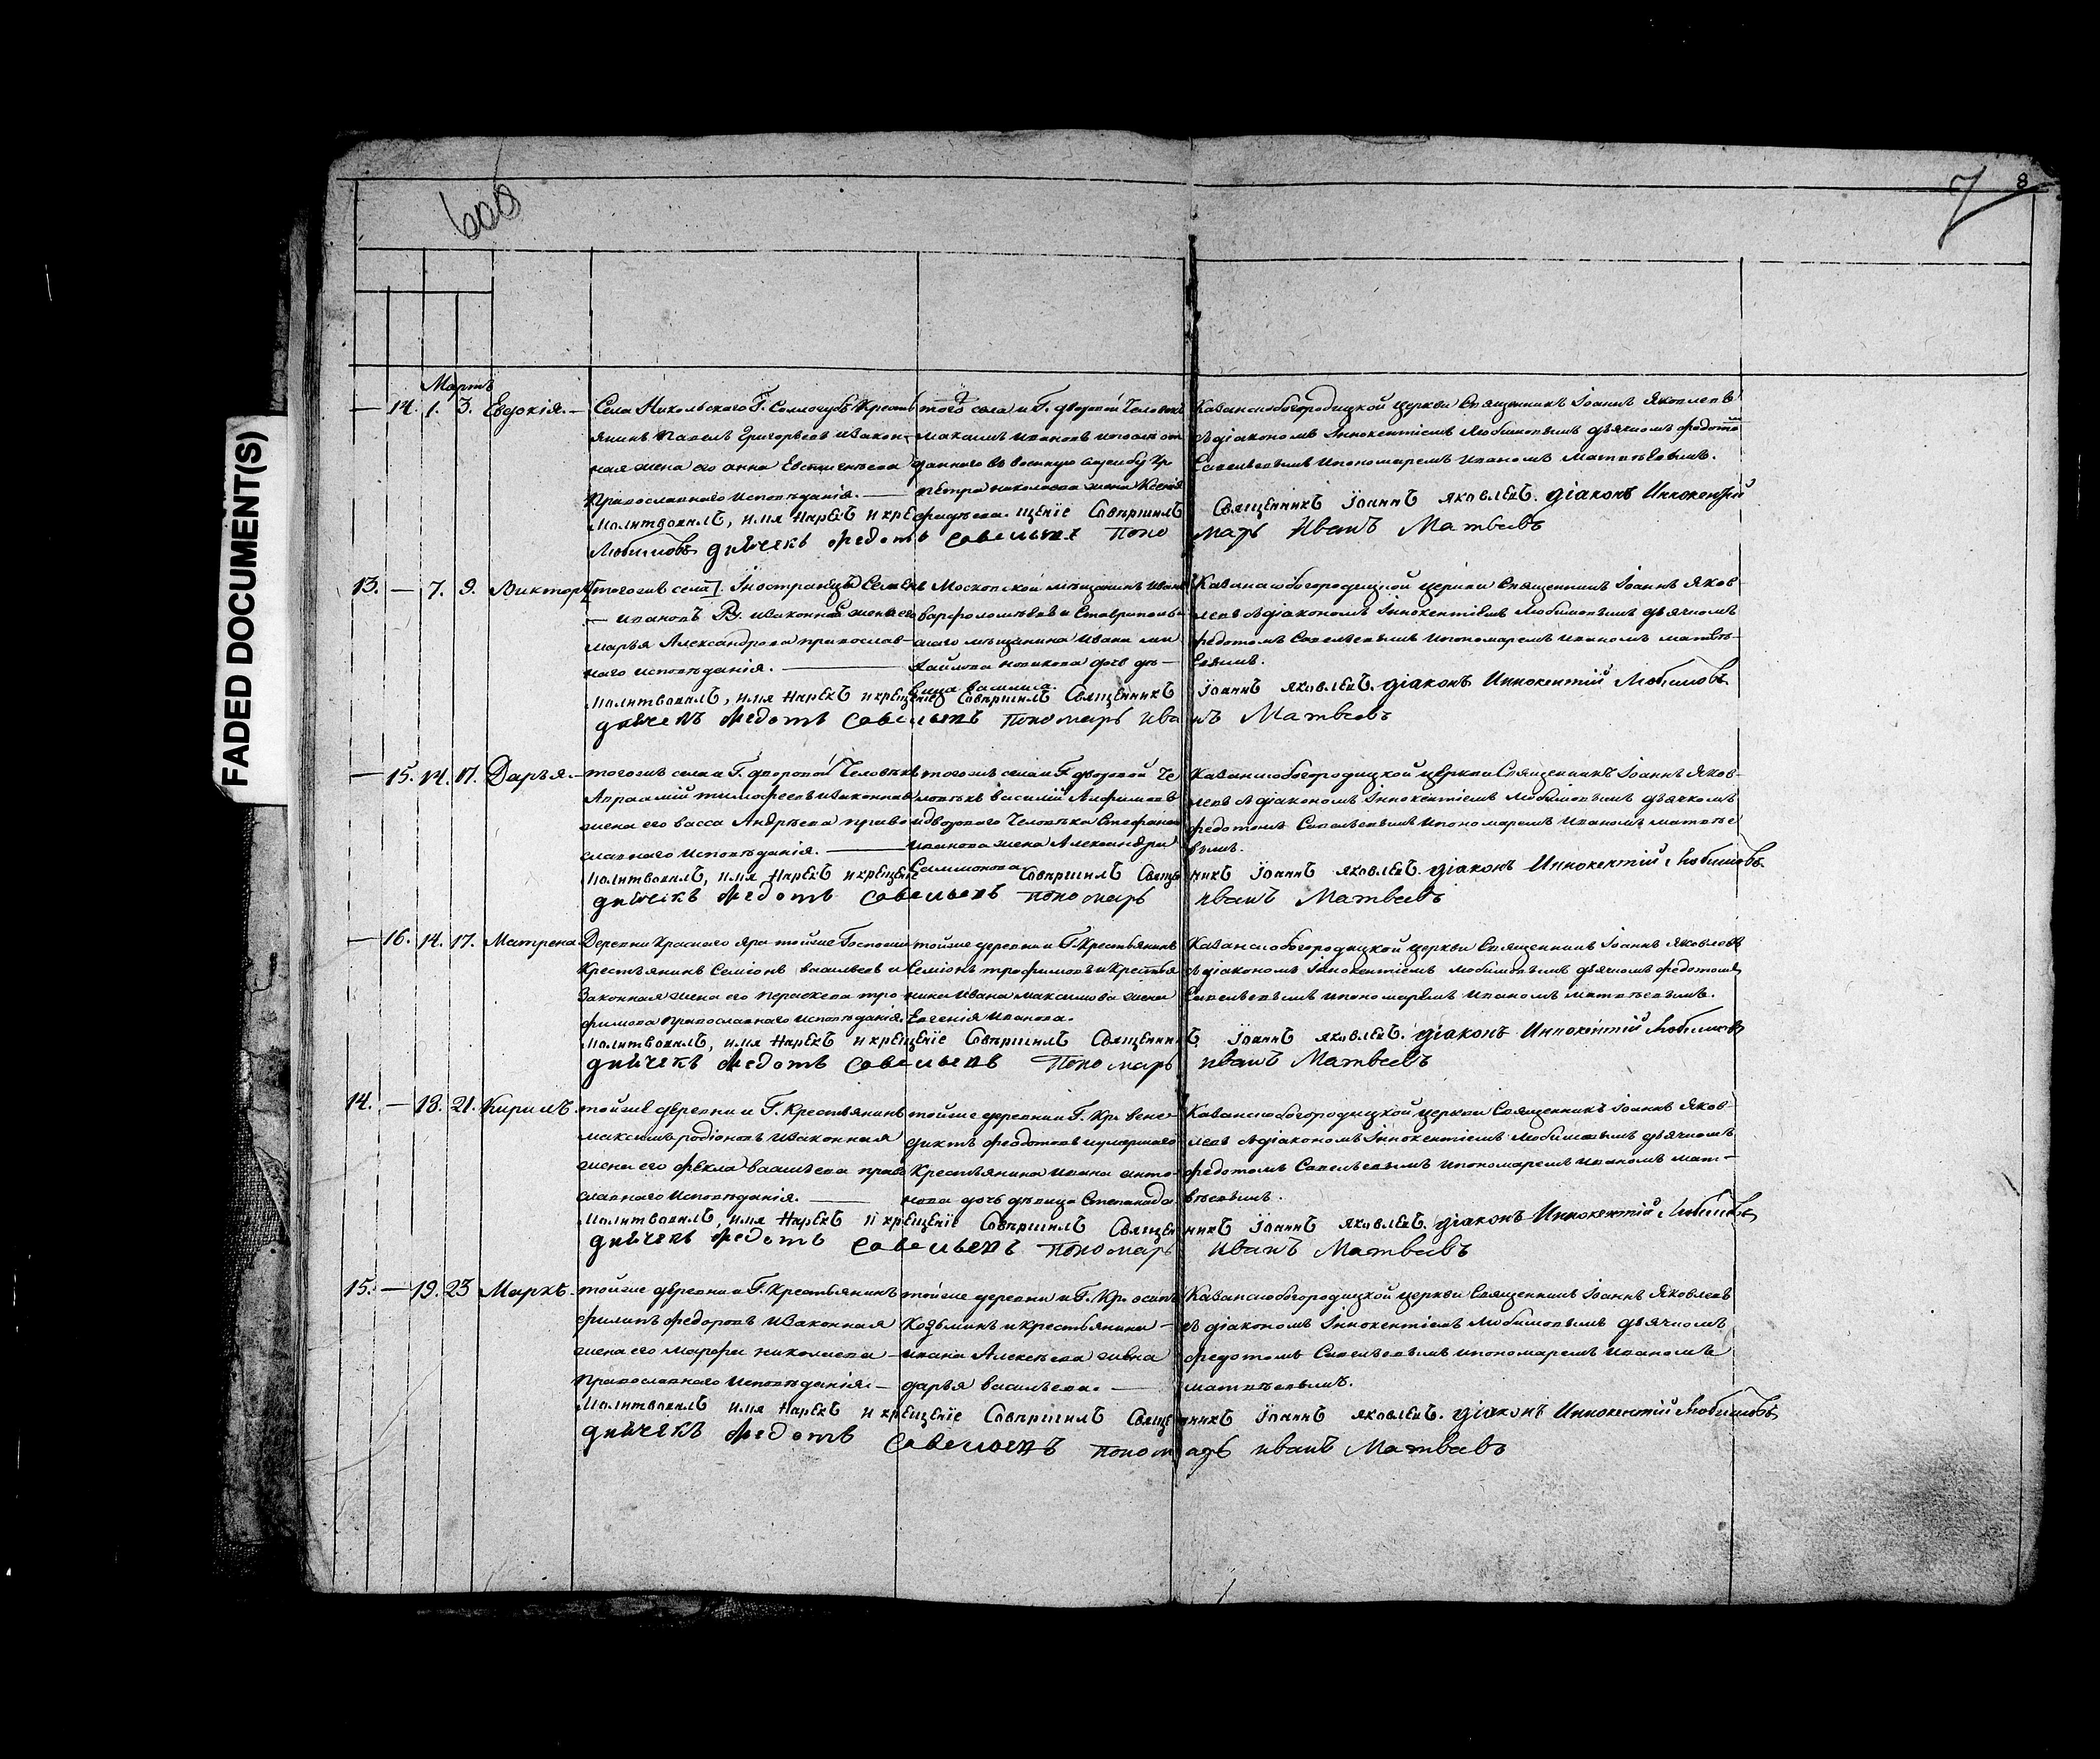 FADED DOCUMENT(S)
606
7
8
Мартъ
14. 1. 3. Евдокія. Села Никольскаго Г. Соллогубъ Крестья
янинъ Павелъ Григорьевъ изакон-
ная жена его анна Евстигнѣева
Православнаго исповѣданія.
того села и Г. дворовой Человѣкъ
максимъ ивановъ
даннаго въ военную службу Кр
петра николаева жена Ксенія
фадѣева.
Казанскобогородицкой церкви Священникъ Іоаннъ Яковлевъ
съ діакономъ Іннокентіемъ Любимовымъ дьячкомъ федото
Савельевымъ ипономаремъ иваномъ Матвѣевымъ.
Молитвовалъ, имя нарекъ и крещеніе Совершилъ Священникъ Іоаннъ яковлевъ. діаконъ Иннокентій
Любимовъ дьячекъ Федотъ Савельевъ Пономарь Иванъ Матвеевъ
13. — 7. 9. Викторъ тогожъ села Іностранецъ Семенъ
ивановъ В. изаконная жена его
марья Александрова православ-
наго исповѣданія.
Московской мѣщанинъ иванъ
варфоломѣевъ и Ставрополь-
скаго мѣщанина ивана ми
хайлова новикова дочь дѣ-
вица
Казанскобогородицкой церкви Священникъ Іоаннъ Яков-
левъ съ діакономъ Іннокентіемъ Любимовымъ дьячкомъ
федотомъ Савельевымъ ипономаремъ иваномъ матвѣ-
евымъ.
Молитвовалъ, имя нарекъ и крещеніе Совершилъ Священникъ Іоаннъ яковлевъ. діаконъ Иннокентій Любимовъ
дьячекъ Федотъ Савельевъ пономарь иванъ Матвеевъ
15. 14. 17. Дарья. тогожъ села и Г. дворовой Человѣкъ
Авраамій тимофеевъ изаконная
жена его васса Андрѣева право
славнаго исповѣданія.
тогожъ села и Г. дворовой Че
ловѣкъ василій Анфимовъ
идвороваго Человѣка Стефана
иванова жена Александра
Симионова
Казанскобогородицкой церкви Священникъ Іоаннъ Яков-
левъ съ діакономъ Іннокентіемъ Любимовымъ дьячкомъ
федотомъ Савельевымъ ипономаремъ иваномъ матвѣе
вымъ.
Молитвовалъ, имя нарекъ и крещеніе Совершилъ Священникъ Іоаннъ яковлевъ. діаконъ Иннокентій Любимовъ
дьячекъ Федотъ Савельевъ пономарь иванъ Матвеевъ
16. 14. 17. Матрена. Деревни Краснаго яра тойже Госпожи
Крестьянинъ Семіонъ васильевъ и
Законная жена его параскева тро-
фимова Православнаго исповѣданія.
тойже деревни и Г. Крестьянинъ
Семіонъ трофимовъ и Крестья
нина ивана максимова жена
Евгенія иванова.
Казанскобогородицкой церкви Священникъ Іоаннъ Яковлевъ
съ діакономъ Іннокентіемъ Любимовымъ дьячкомъ федотомъ
Савельевымъ ипономаремъ иваномъ матвѣевымъ.
Молитвовалъ, имя нарекъ и крещеніе Совершилъ Священникъ Іоаннъ яковлевъ. діаконъ Иннокентій Любимовъ
дьячекъ Федотъ Савельевъ Пономарь иванъ Матвеевъ
14. — 18. 21. Кирилъ. тойже деревни и Г. Крестьянинъ
максимъ родіоновъ изаконная
жена его фекла васильева право
славнаго исповѣданія.
тойже деревни и Г. Кр. Вене-
диктъ феодотовъ иумершаго
Крестьянина ивана анто-
нова дочь дѣвица Степанида
Казанскобогородицкой церкви Священникъ Іоаннъ Яков-
левъ съ діакономъ Іннокентіемъ Любимовымъ дьячкомъ
федотомъ Савельевымъ ипономаремъ иваномъ мат-
вѣевымъ.
Молитвовалъ, имя нарекъ и крещеніе Совершилъ Священникъ Іоаннъ яковлевъ. діаконъ Иннокентій Любимовъ
дьячекъ Федотъ Савельевъ пономарь иванъ Матвеевъ
15. — 19. 23 Маркъ. тойже деревни и Г. Крестьянинъ
филипъ федоровъ изаконная
жена его марфа николаева
Православнаго исповѣданія.
тойже деревни и Г. Кр. осипъ
Козьминъ и крестьянина
ивана Алексѣева жена
дарья васильева.
Казанскобогородицкой церкви Священникъ Іоаннъ Яковлевъ
съ діакономъ Іннокентіемъ Любимовымъ дьячкомъ
федотомъ Савельевымъ ипономаремъ иваномъ
матвѣевымъ.
Молитвовалъ имя нарекъ и крещеніе Совершилъ Священникъ Іоаннъ яковлевъ. діаконъ Иннокентій Любимовъ
дьячекъ Федотъ Савельевъ пономарь иванъ Матвеевъ